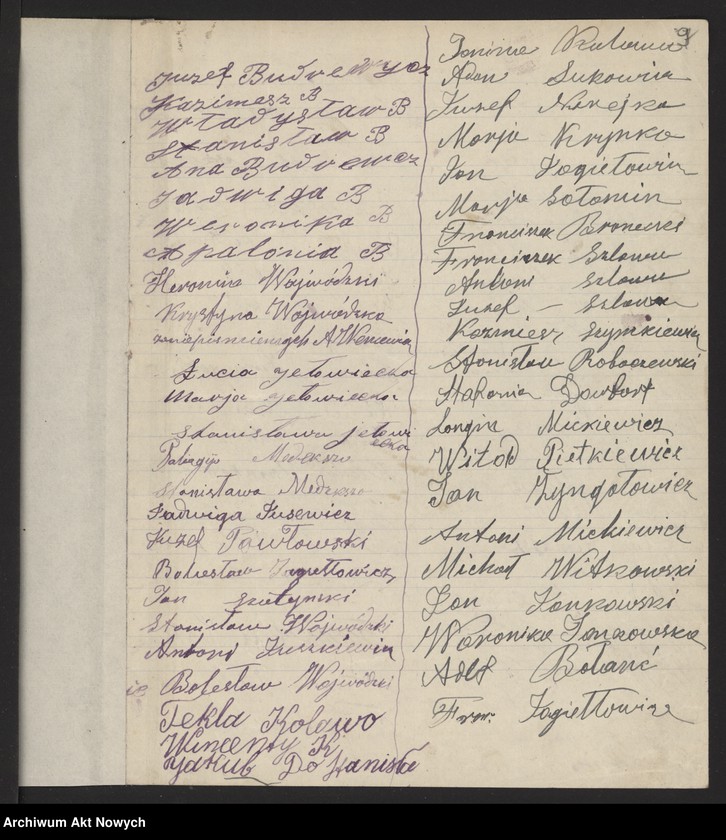 Juzef Budrewycz
Kazimesz B
Władysław B
Stanisław B
Ana Budrewcz
Jadwiga B
Weronika B
Apalonia B
Heronim Wojwódzki
Krystyna Wojwódzka
Łucia Jełowiecka
Marja Jełowiecka
Stanisława Jełowi
ecka
Stanisława
Jadwiga Jusewicz
Juzef Pawłowski
Bolesław Jagiełłowicz
Jan
Stanisław Wojwódzki
Antoni Juszkiewicz
Bolesław Wojwódzki
Tekla Kolawo
Wincenty K
Jakub Do Stanisła
9
Janina
Adan Sukowicz
Juzef Narejko
Marja Krynko
Jan Jagiełowicz
Marja Sołomin
Franciszek Bronecki
Franciszek Szlowu
Antoni Szlowu
Juzef — Szlowu
Kazmiesz Szymkiewicz
Stanisław Robaczewski
Stefania Dowbort
Longin Mickiewicz
Witold Pietkiewicz
Jan Zyngotowicz
Antoni Mickiewicz
Michał Witkowski
Jan Jankowski
Waronika Jankowska
Adlf Bołanć
Fran. Jagiełłowicz
Archiwum Akt Nowych